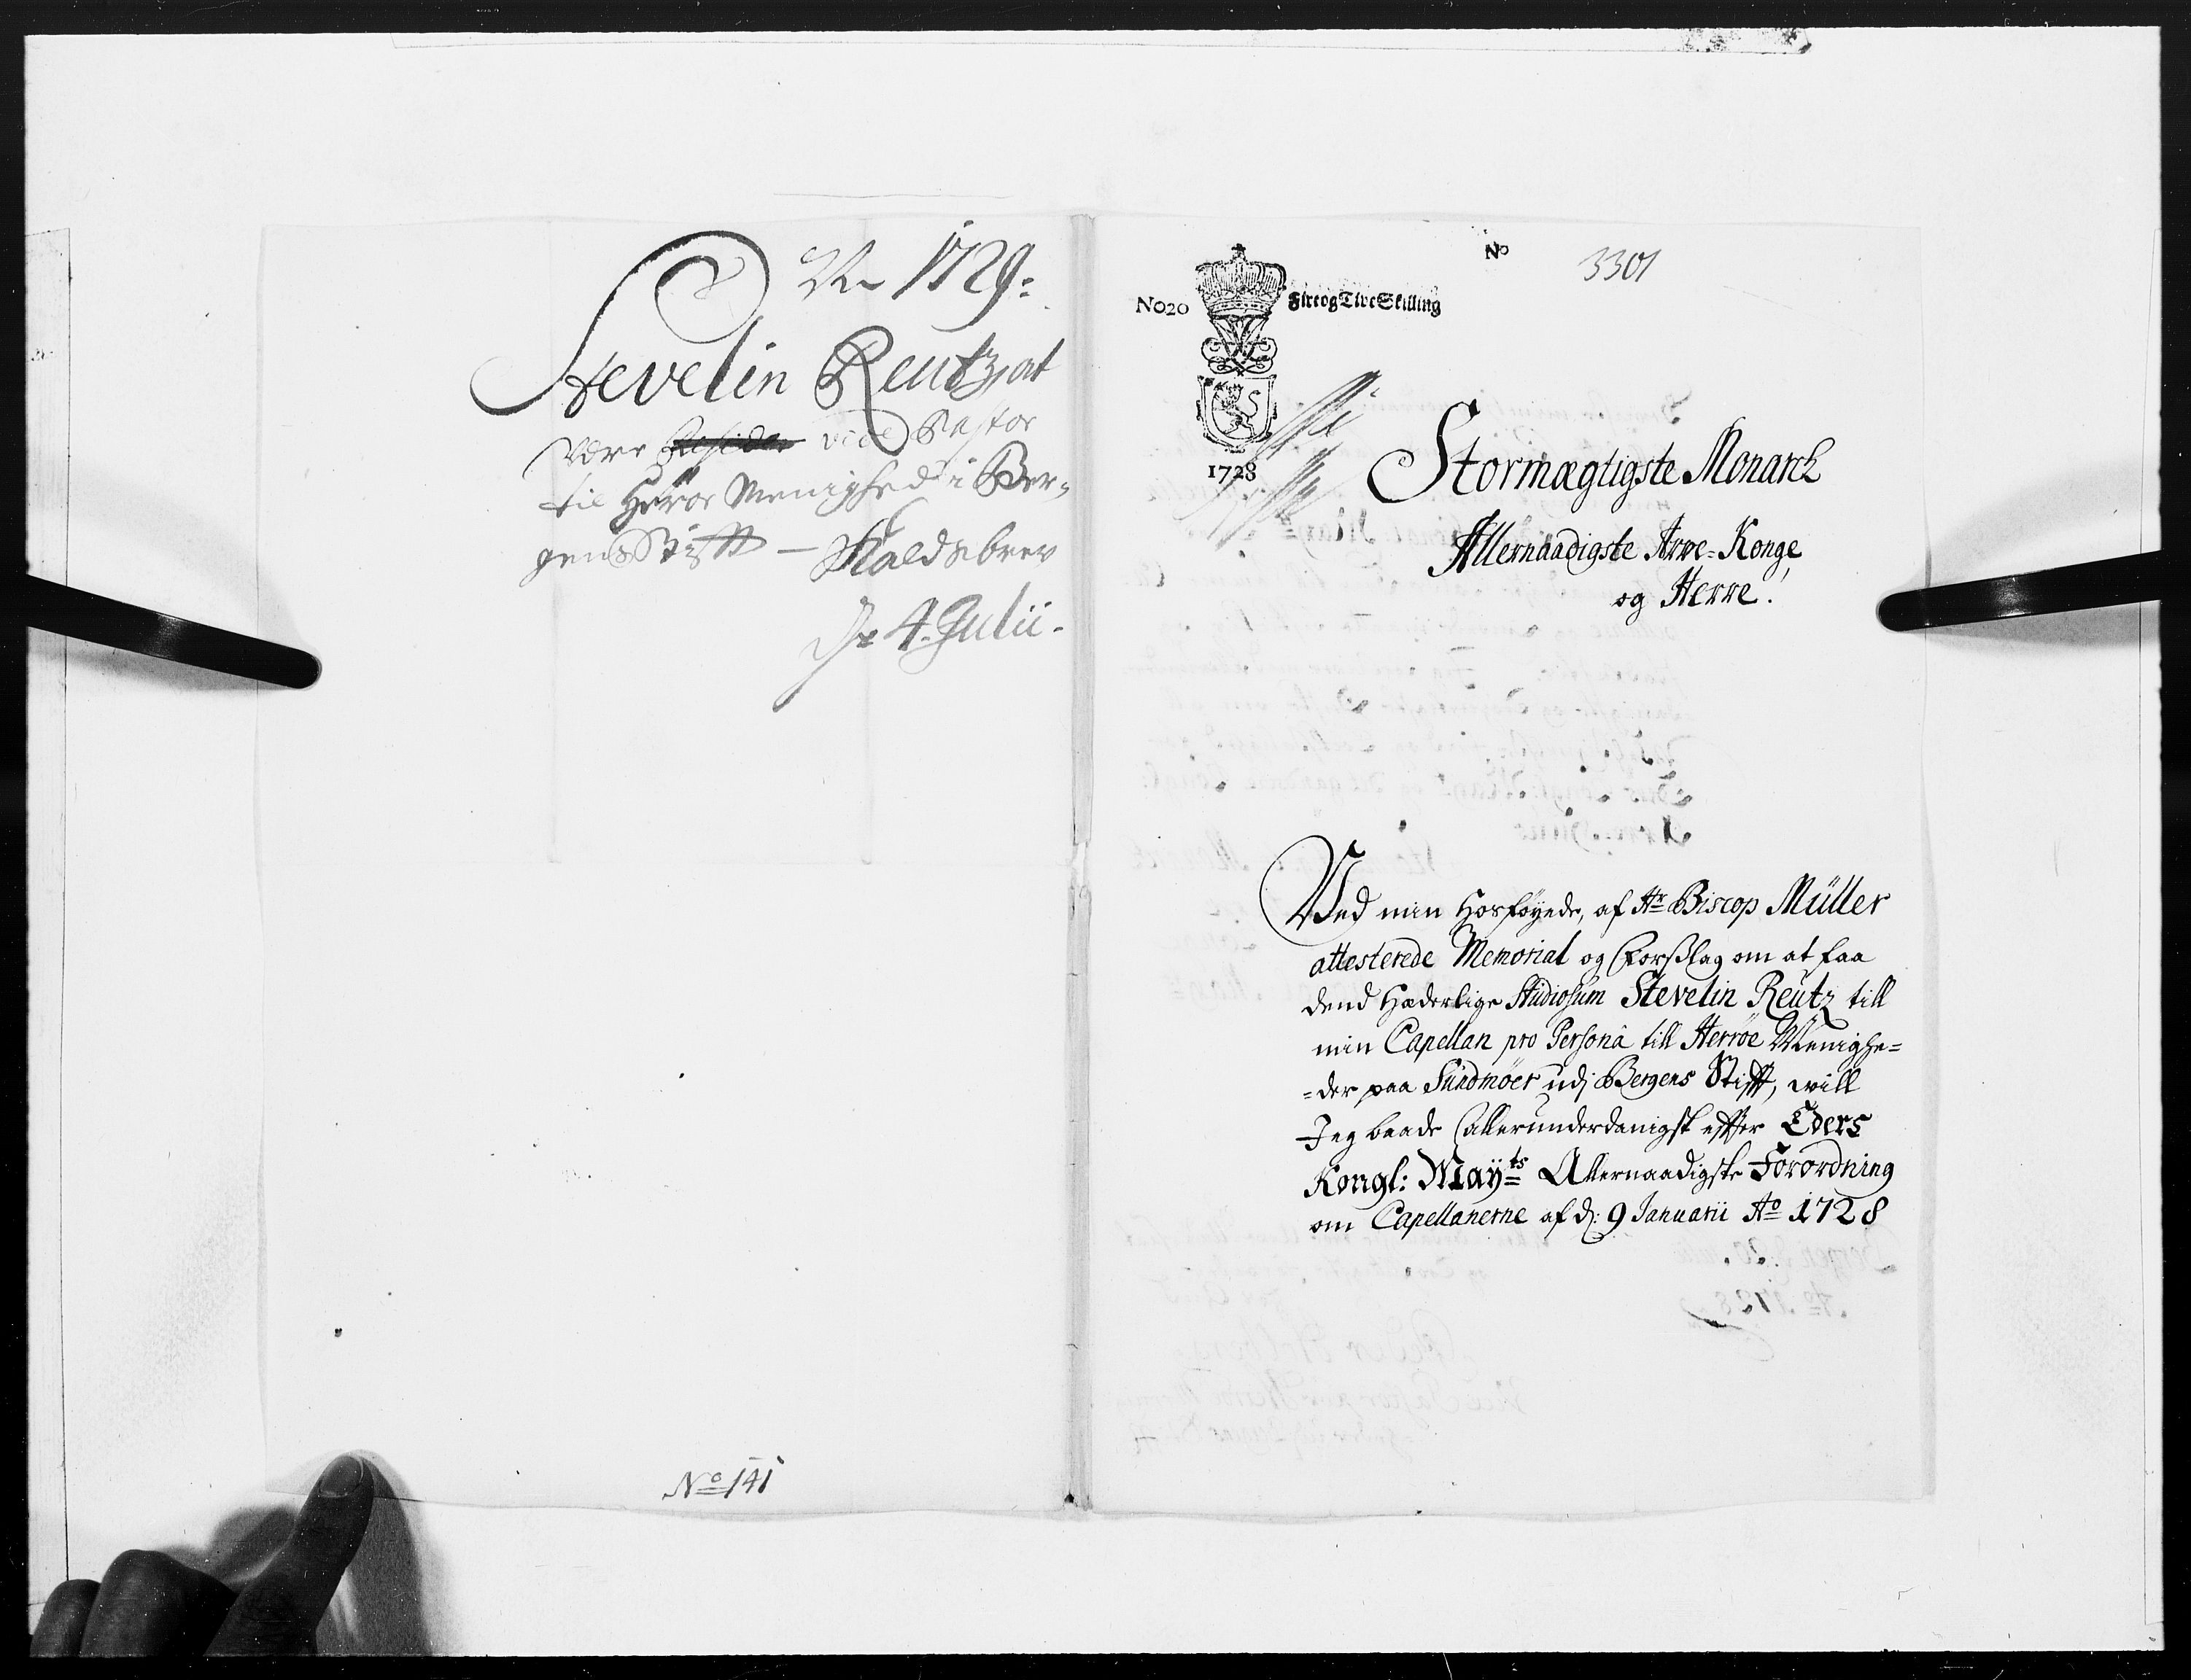 1729:
Stevelin Reutz, at
være vice Pastor
til Herøe Menighed i Ber-
gens Stifft — Kaldsbrev
4. Julii.
No 141
No 3301
No 20 Fire og Tive Skilling
1728
Stormægtigste Monarch
Allernaadigste Arve-Konge
og Herre!
Ved min hosføyede, af Hr Biscop Müller
attesterede Memorial og Forslag om at faa
dend Hæderlige Studiosum Stevelin Reutz till
min Capellan pro Persona till Herröe Menighe=
=der paa Sundmöer udj Bergens Stifft, will
Jeg baade allerunderdanigst effter Eders
Kongl: Mayts Allernaadigste Forordning
om Capellanerne af d: 9 Januarii Ao 1728